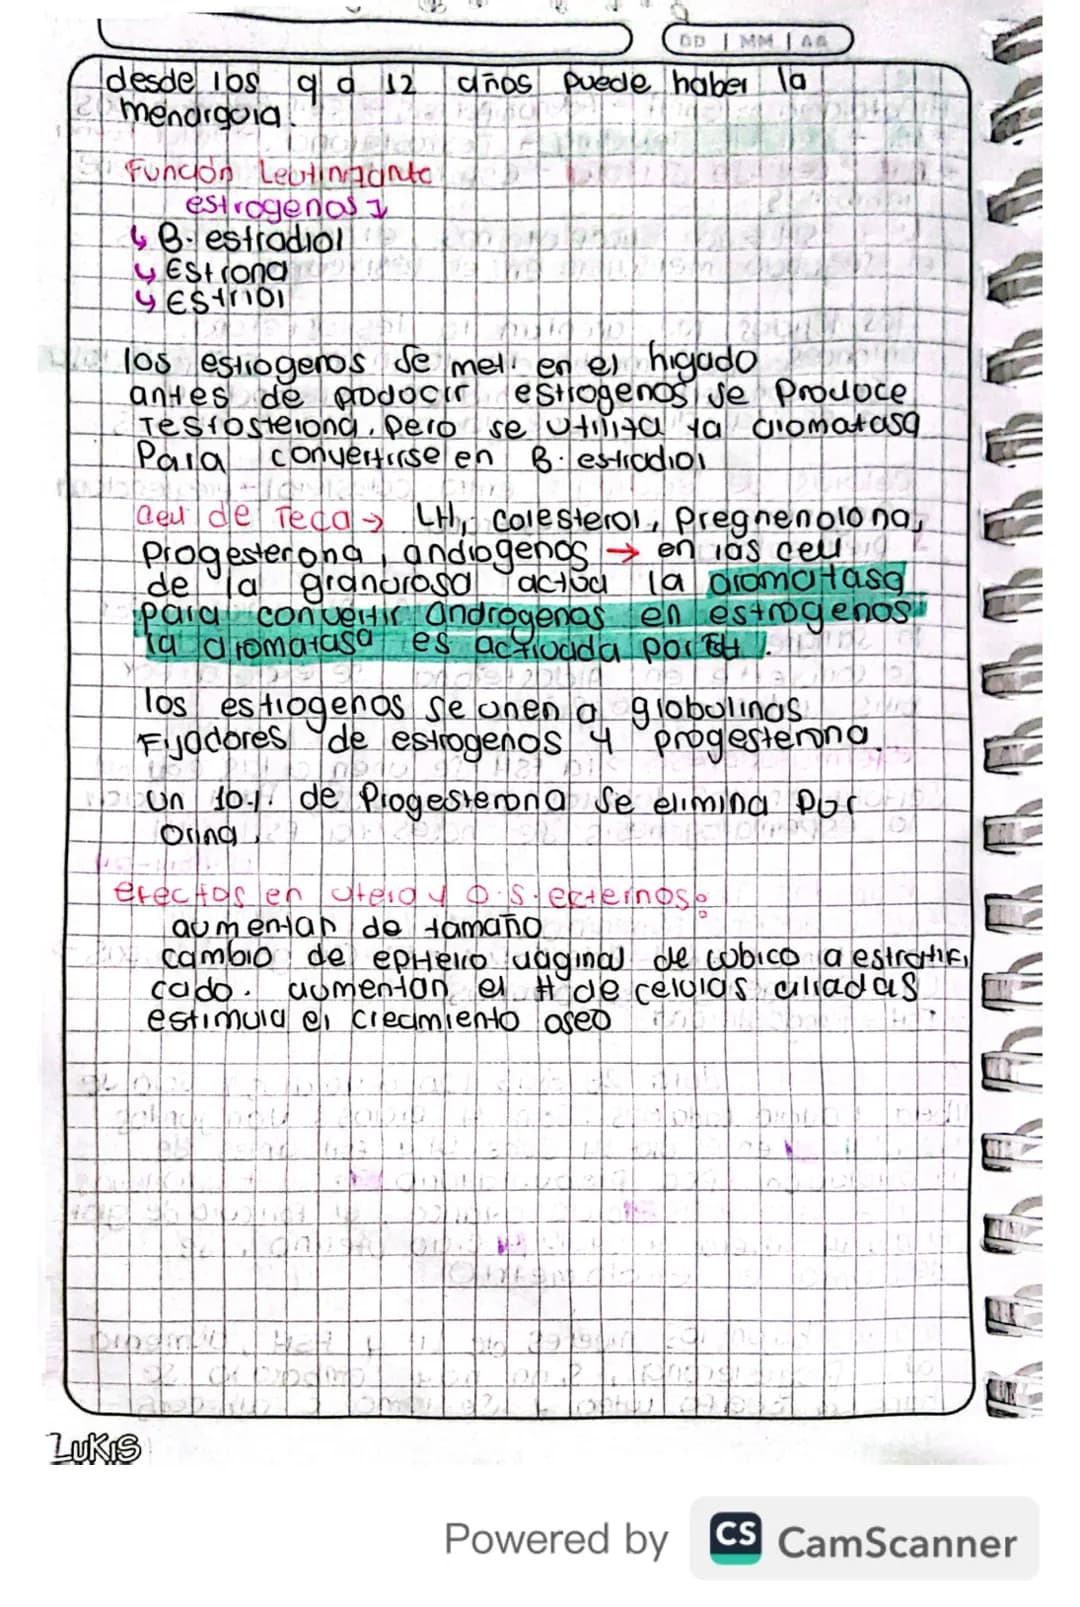 DD | MM | AA
desde los 9 a 12 años puede haber la
menarquia.
Función Leutinizante
estrogenos
B. estradiol
Estrona
Estriol
los estrogenos se met. en el higado
antes de producir estrogenos se Produce
Testosterona, pero se utiliza la aromatasa
Para convertirse en B. estradiol
cell de Teca → LH, colesterol, pregnenolona,
Progesterona, androgenos → en las cell
de la granurosa actúa la aromatasa
para convertir androgenos en estrogenos
la aromatasa es activada por FSH.
los estrogenos se unen a globulinas
Fijadores de estrogenos y progesterona.
un 10%. de Progesterona se elimina por
orina.
efectos en utero y O.S. externos:
aumentan de tamaño
cambio de epitelio vaginal de cubico a estratifi
cado. aumentan el # de celulas ciliadas
estimula el crecimiento oseo
LUKIS
Powered by CS CamScanner